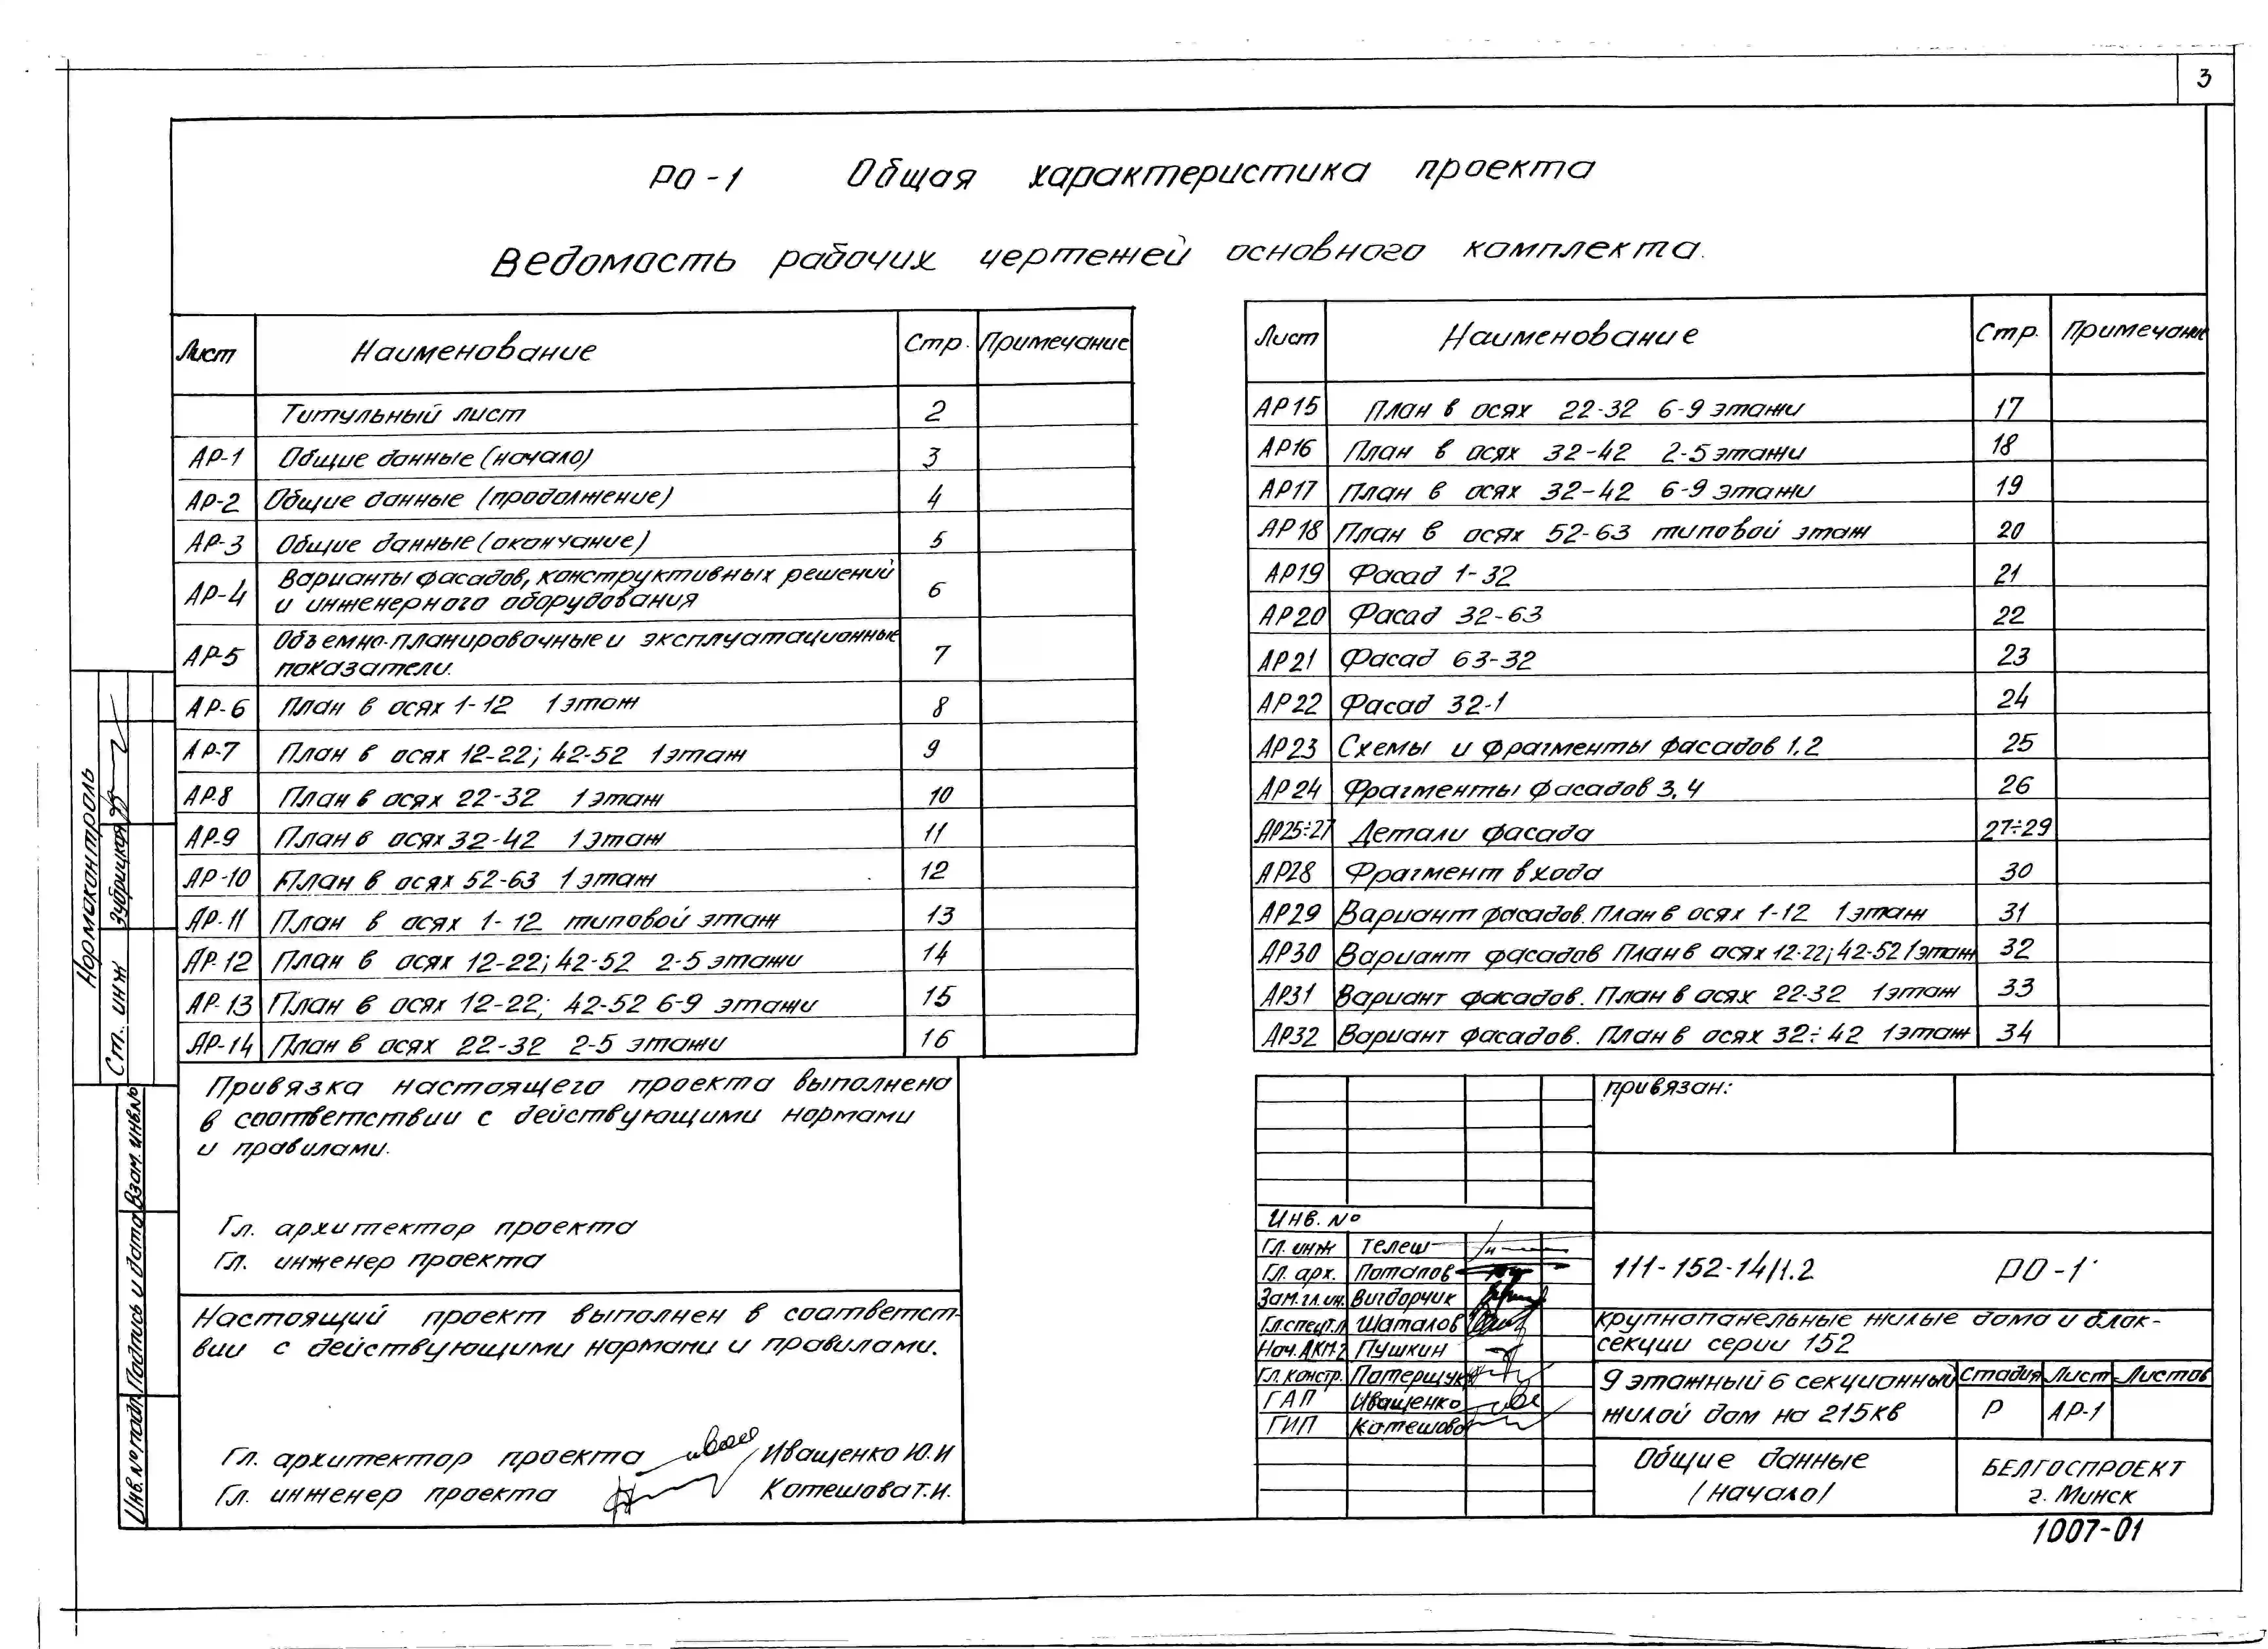 3
РО-1 Общая характеристика проекта
Ведомость рабочих чертежей основного комплекта.
Лист Наименование Стр. Примечание
Титульный лист 2
АР-1 Общие данные (начало) 3
АР-2 Общие данные (продолжение) 4
АР-3 Общие данные (окончание) 5
АР-4 Варианты фасадов, конструктивных решений
и инженерного оборудования 6
АР-5 Объемно-планировочные и эксплуатационные
показатели. 7
АР-6 План в осях 1-12 1 этаж 8
АР-7 План в осях 12-22; 42-52 1 этаж 9
АР-8 План в осях 22-32 1 этаж 10
АР-9 План в осях 32-42 1 этаж 11
АР-10 План в осях 52-63 1 этаж 12
АР-11 План в осях 1-12 типовой этаж 13
АР-12 План в осях 12-22; 42-52 2-5 этажи 14
АР-13 План в осях 12-22; 42-52 6-9 этажи 15
АР-14 План в осях 22-32 2-5 этажи 16
Лист Наименование Стр. Примечание
АР15 План в осях 22-32 6-9 этажи 17
АР16 План в осях 32-42 2-5 этажи 18
АР17 План в осях 32-42 6-9 этажи 19
АР18 План в осях 52-63 типовой этаж 20
АР19 Фасад 1-32 21
АР20 Фасад 32-63 22
АР21 Фасад 63-32 23
АР22 Фасад 32-1 24
АР23 Схемы и фрагменты фасадов 1.2 25
АР24 Фрагменты фасадов 3.4 26
АР25÷27 Детали фасада 27÷29
АР28 Фрагмент входа 30
АР29 Вариант фасадов. План в осях 1-12 1 этаж 31
АР30 Вариант фасадов План в осях 12-22; 42-52 1 этаж 32
АР31 Вариант фасадов. План в осях 22-32 1 этаж 33
АР32 Вариант фасадов. План в осях 32÷42 1 этаж 34
Привязка настоящего проекта выполнена
в соответствии с действующими нормами
и правилами.
Гл. архитектор проекта
Гл. инженер проекта
Настоящий проект выполнен в соответст-
вии с действующими нормами и правилами.
Гл. архитектор проекта Иващенко Ю.И
Гл. инженер проекта Котешова Т.И.
Нормоконтроль
Ст. инж Зубрицкая
Взам. инв.№
Подпись и дата
Инв.№ подл.
привязан:
Инв. №
Гл. инж Телеш
Гл. арх. Потапов
Зам.гл.ин. Вигдорчик
Гл.спец.т.п Шаталов
Нач.АКМ-2 Пушкин
Гл.констр. Патерщук
ГАП Иващенко
ГИП Котешова
111-152-14/1.2 РО-1
Крупнопанельные жилые дома и блок-
секции серии 152
9 этажный 6 секционный
жилой дом на 215кв
Стадия Лист Листов
Р АР-1
Общие данные
/начало/
БЕЛГОСПРОЕКТ
г. Минск
1007-01